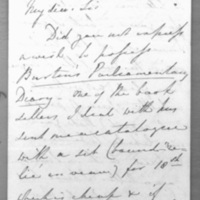 My dear Sir
Did you not express
a wish to possess
Burton's Parliamentary
Diary one of the book
sellers I deal with has
sent me a catalogue
with a set (bound
in ) for 18th
which is cheap & if